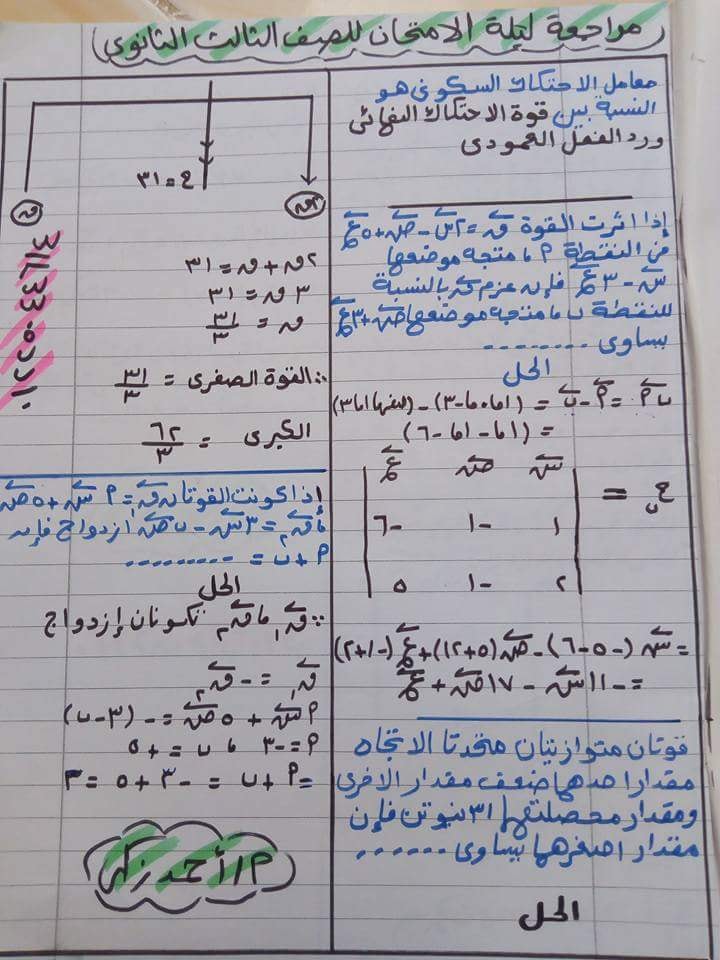 مراجعة ليلة الامتحان للصف الثالث الثانوى
معامل الاحتكاك السكونى هو
النسبة بين قوة الاحتكاك النهائى
ورد الفعل العمودى
إذا اثرت القوة ق = ٢س - ص + ٥ع
فى النقطة P ، متجه موضعها
س - ٣ع فإن عزم ق بالنسبة
للنقطة ب ، متجه موضعها ص + ٣ع
يساوى ........
الحل
ب P = P - ب = (١،٠،-٣) - (صفر،١،٣)
= (١،-١،-٦)
س ص ع
ج ب =
١ -١ -٦
٢ -١ ٥
= س(-٥-٦) - ص(٥+١٢) + ع(-١+٢)
= -١١س - ١٧ص + ع
قوتان متوازيتان متحدتا الاتجاه
مقدار احدهما ضعف مقدار الاخرى
ومقدار محصلتهما ٣١ نيوتن فإن
مقدار اصغرهما يساوى .......
الحل
ح = ٣١
٢ق
ق
٢ق + ق = ٣١
٣ق = ٣١
ق = ٣١/٣
∴ القوة الصغرى = ٣١/٣
الكبرى = ٦٢/٣
إذا كونت القوتان ق١ = P س + ٥ص
، ق٢ = ٣س - ب ص ازدواج فإن
P + ب = .........
الحل
∵ ق١ ، ق٢ تكونان إزدواج
ق١ = - ق٢
P س + ٥ص = -(٣-ب)
P = -٣ ، ب = +٥
= P + ب = -٣ + ٥ = ٣
م/أحمد زكى